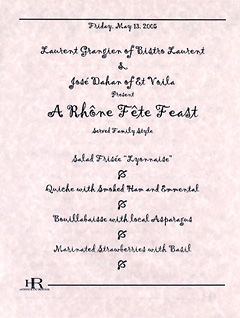 Friday, May 13, 2005
Laurent Grangien of Bistro Laurent
&
José Dahan of Et Voila
Present
A Rhône Fête Feast
Served Family Style
Salad Frisée "Lyonnaise"
Quiche with Smoked Ham and Emmental
Bouillabaisse with local Asparagus
Marinated Strawberries with Basil
HR